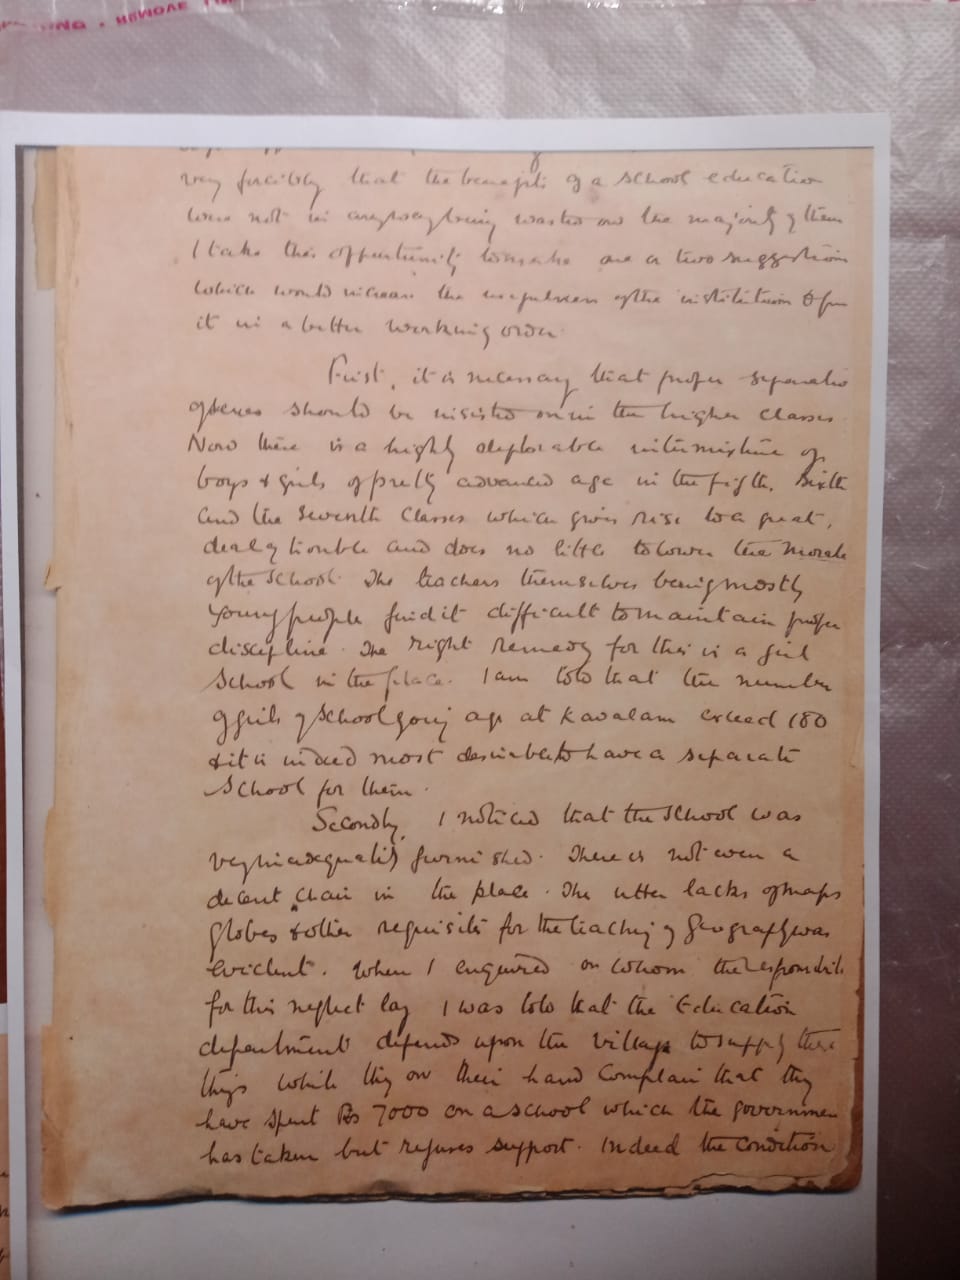 REMOVE
very forcibly that the benefits of a school education
were not in anyway being wasted on the majority of them
I take this opportunity to make one or two suggestions
which would increase the usefulness of the institution &
it in a better working order.
First, it is necessary that proper separatio
of sexes should be insisted on in the higher classes
Now there is a highly deplorable intermixture of
boys & girls of pretty advanced age in the fifth, Sixth
and the Seventh Classes which gives rise to a great,
deal of trouble and does no little to lower the morale
of the School. The teachers themselves being mostly
young people find it difficult to maintain proper
discipline. The right Remedy for this is a girl
School in the place. I am told that the number
of girls of School going age at Kavalam exceed 180
& it is indeed most desirable to have a separate
School for them.
Secondly, I noticed that the School was
very inadequately furnished. There is not even a
decent chair in the place. The utter lacks of maps
globes & other requisites for the teaching of Geography was
evident. When I enquired on whom the responsibili
for this neglect lay I was told that the Education
department depends upon the village to supply these
things while they on their hand Complain that they
have spent Rs 7000 on a school which the governmen
has taken but refuses support. Indeed the condition